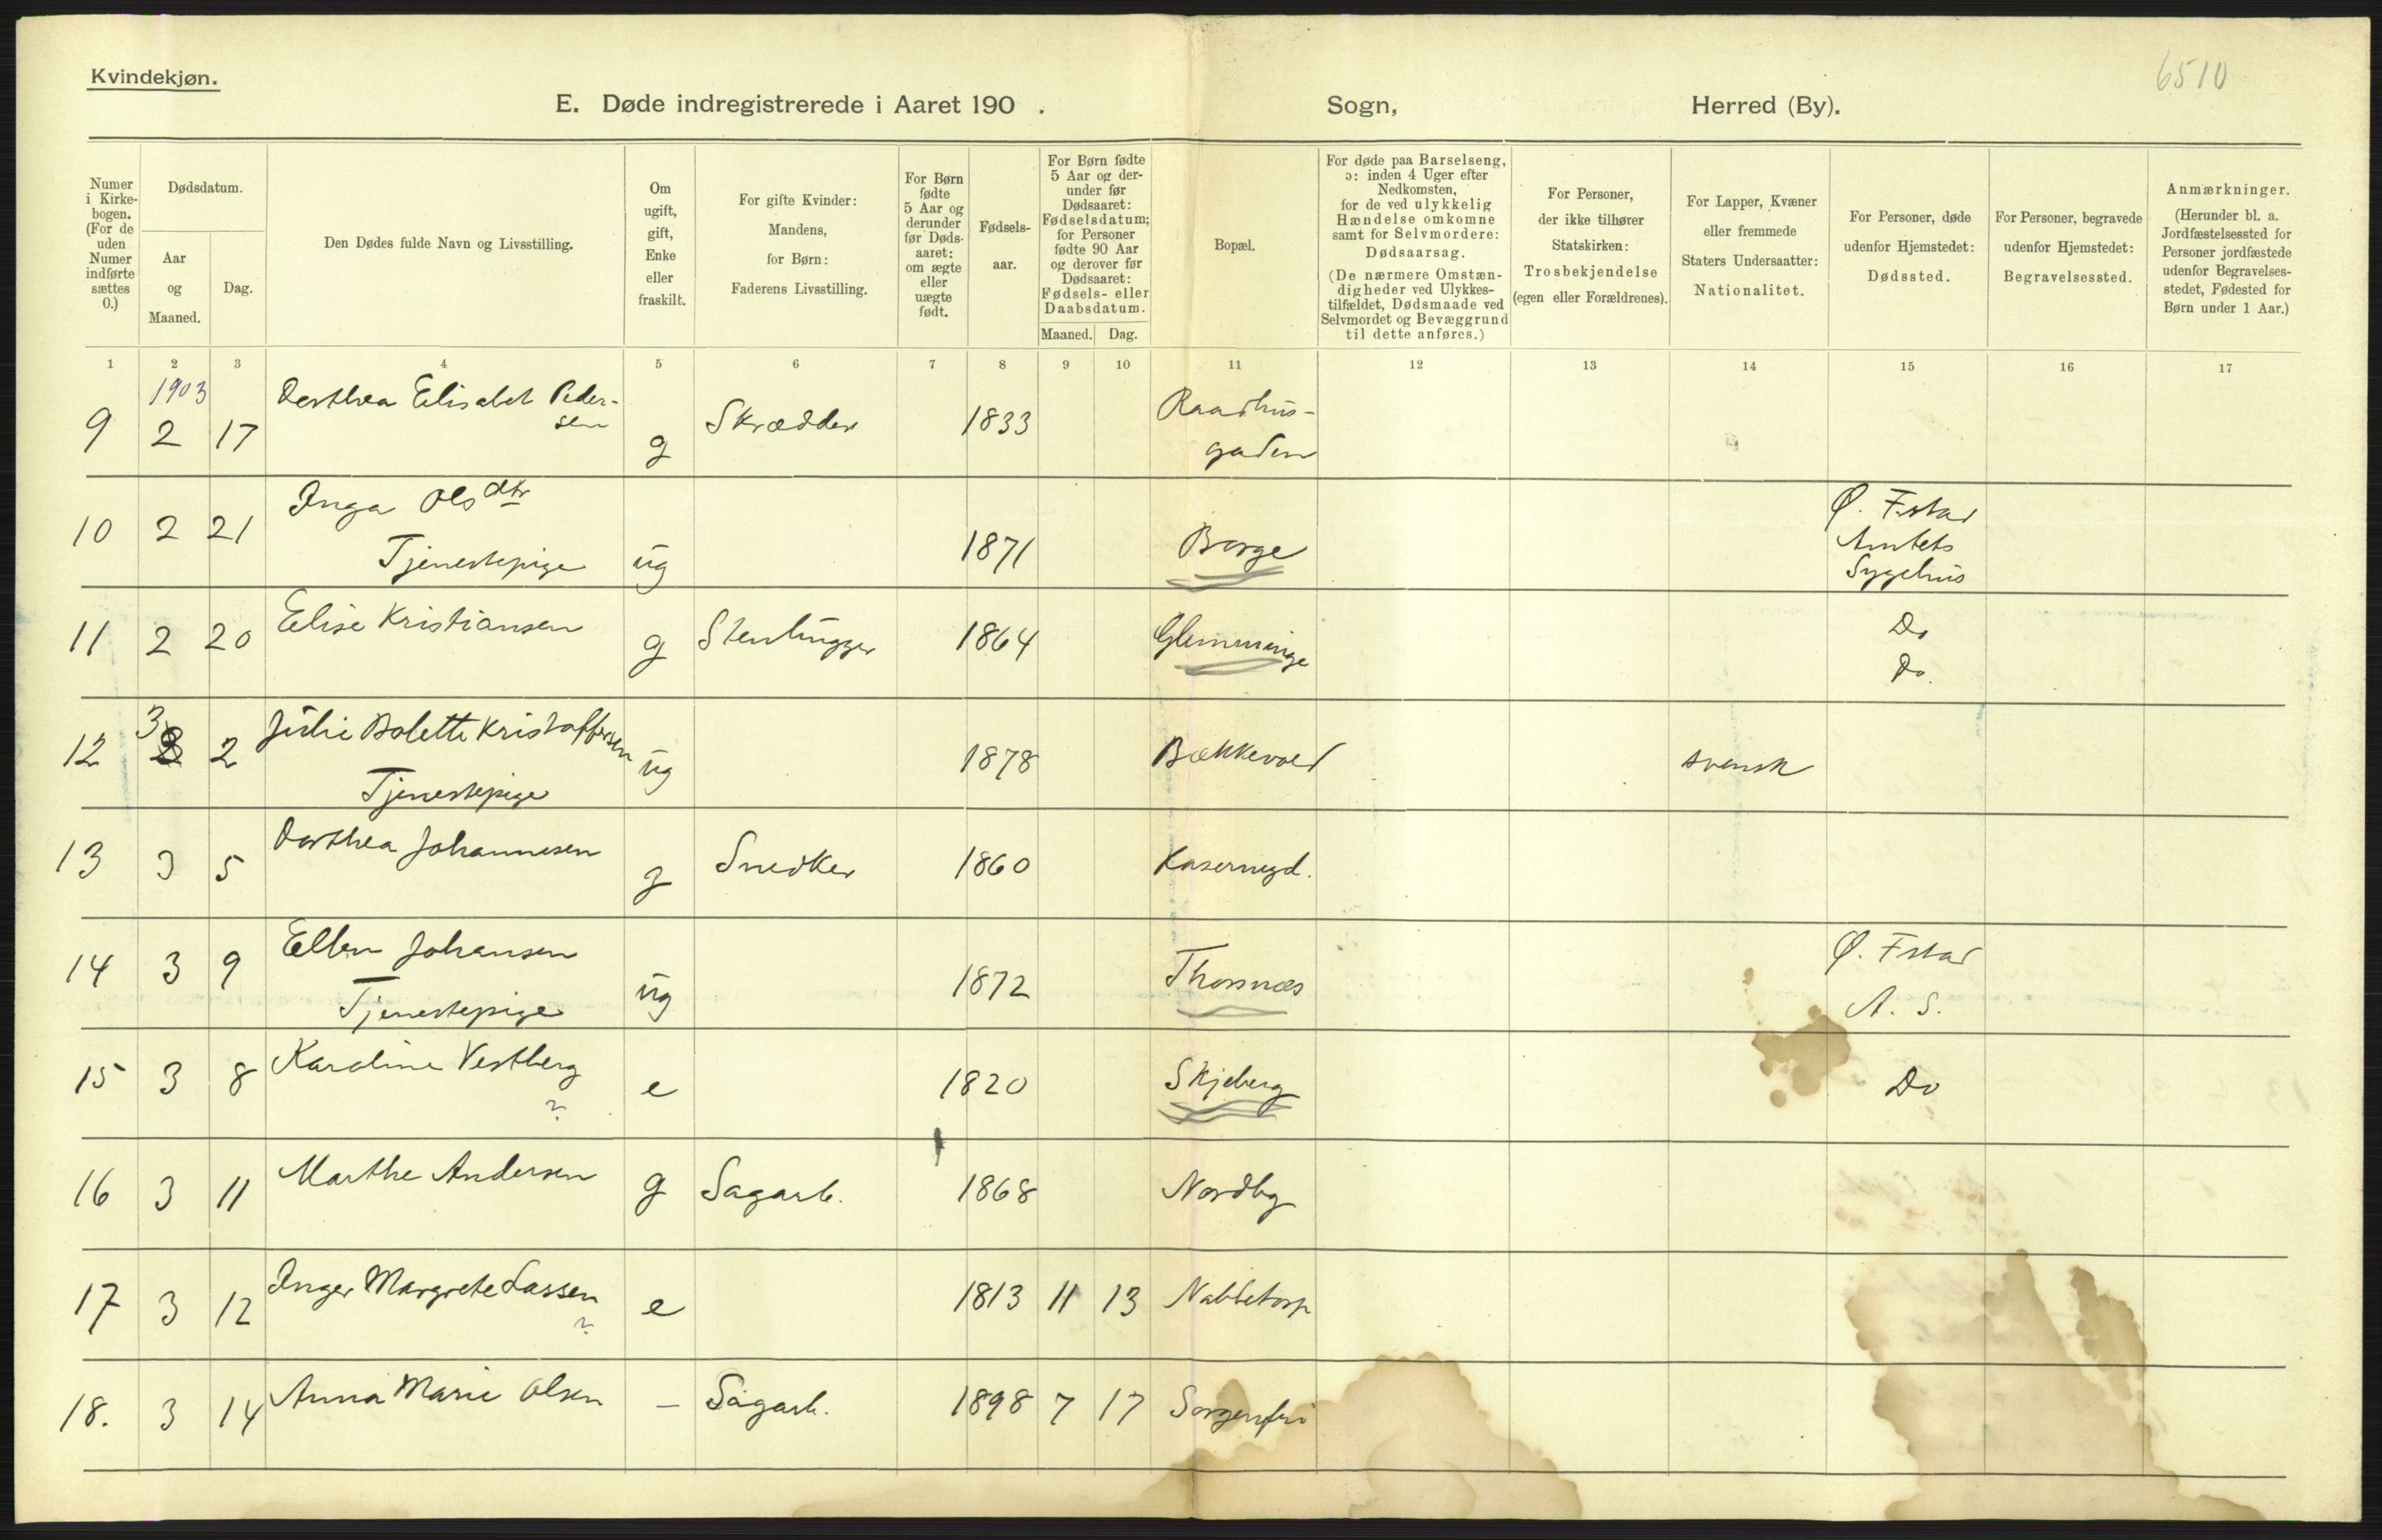 Kvindekjøn.
6510
E. Døde indregistrerede i Aaret 190 . Sogn, Herred (By).
Numer i Kirke-bogen. (For de uden Numer indførte sættes 0.)
Dødsdatum.
Aar og Maaned.
Dag.
Den Dødes fulde Navn og Livsstilling.
Om ugift, gift, Enke eller fraskilt.
For gifte Kvinder: Mandens, for Børn: Faderens Livsstilling.
For Børn fødte 5 Aar og derunder før Døds-aaret: om ægte eller uægte født.
Fødsels-aar.
For Børn fødte 5 Aar og der-under før Dødsaaret: Fødselsdatum; for Personer fødte 90 Aar og derover før Dødsaaret: Fødsels- eller Daabsdatum.
Maaned. Dag.
Bopæl.
For døde paa Barselseng, ɔ: inden 4 Uger efter Nedkomsten, for de ved ulykkelig Hændelse omkomne samt for Selvmordere: Dødsaarsag. (De nærmere Omstæn-digheder ved Ulykkes-tilfældet, Dødsmaade ved Selvmordet og Bevæggrund til dette anføres.)
For Personer, der ikke tilhører Statskirken: Trosbekjendelse (egen eller Forældrenes).
For Lapper, Kvæner eller fremmede Staters Undersaatter: Nationalitet.
For Personer, døde udenfor Hjemstedet: Dødssted.
For Personer, begravede udenfor Hjemstedet: Begravelsessted.
Anmærkninger. (Herunder bl. a. Jordfæstelsessted for Personer jordfæstede udenfor Begravelses-stedet, Fødested for Børn under 1 Aar.)
1 2 3 4 5 6 7 8 9 10 11 12 13 14 15 16 17
1903
9 2 17 Dorthea Elisabet Peder-sen g Skrædder 1833 Raadhus-gaden
10 2 21 Inga Olsdtr Tjenestepige ug 1871 Borge Ø. Fstad Amtets Sygehus
11 2 20 Elise Kristiansen g Stenhugger 1864 Glemminge Do Do.
12 3 2 Julie Bolette Kristoffersen Tjenestepige ug 1878 Bækkevold svensk
13 3 5 Dorthea Johannesen g Snedker 1860 Kasernegd.
14 3 9 Ellen Johansen Tjenestepige ug 1872 Thorsnæs Ø. Fstad A. S.
15 3 8 Karoline Vestberg ? e 1820 Skjeberg Do
16 3 11 Marthe Andersen g Sagarb. 1868 Nordby
17 3 12 Inger Margrete Lassen ? e 1813 11 13 Nabbetorp
18. 3 14 Anna Marie Olsen — Sagarb. 1898 7 17 Sorgenfri